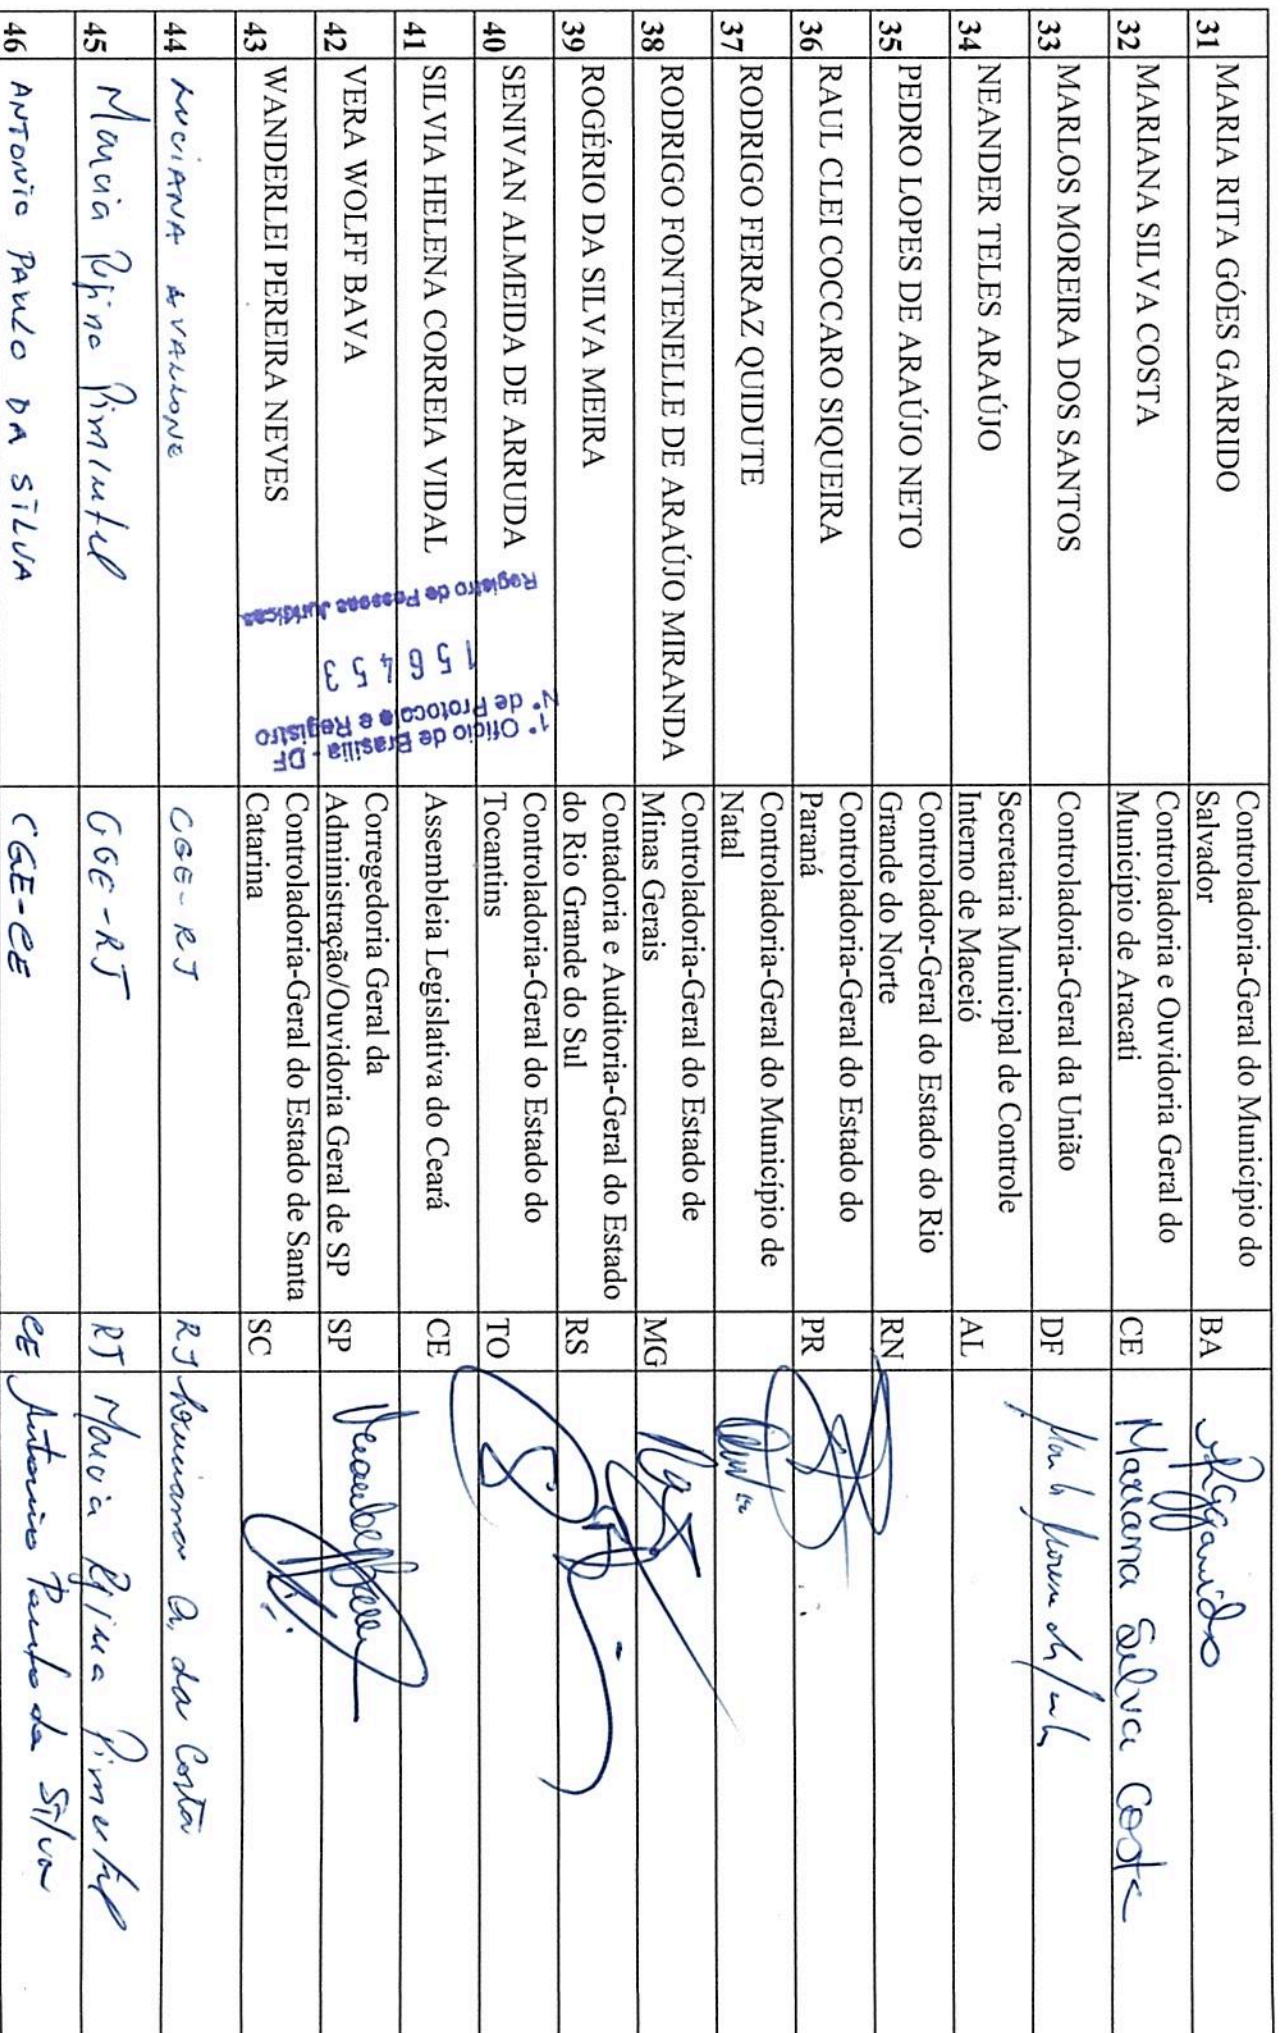 31 MARIA RITA GÓES GARRIDO Controladoria-Geral do Município do
Salvador BA
32 MARIANA SILVA COSTA Controladoria e Ouvidoria Geral do
Município de Aracati CE Mariana Silva Costa
33 MARLOS MOREIRA DOS SANTOS Controladoria-Geral da União DF
34 NEANDER TELES ARAÚJO Secretaria Municipal de Controle
Interno de Maceió AL
35 PEDRO LOPES DE ARAÚJO NETO Controlador-Geral do Estado do Rio
Grande do Norte RN
36 RAUL CLEI COCCARO SIQUEIRA Controladoria-Geral do Estado do
Paraná PR
37 RODRIGO FERRAZ QUIDUTE Controladoria-Geral do Município de
Natal
38 RODRIGO FONTENELLE DE ARAÚJO MIRANDA Controladoria-Geral do Estado de
Minas Gerais MG
39 ROGÉRIO DA SILVA MEIRA Contadoria e Auditoria-Geral do Estado
do Rio Grande do Sul RS
40 SENIVAN ALMEIDA DE ARRUDA Controladoria-Geral do Estado do
Tocantins TO
41 SILVIA HELENA CORREIA VIDAL Assembleia Legislativa do Ceará CE
42 VERA WOLFF BAVA Corregedoria Geral da
Administração/Ouvidoria Geral de SP SP
43 WANDERLEI PEREIRA NEVES Controladoria-Geral do Estado de Santa
Catarina SC
44 LUCIANA AVALLONE CGE-RJ RJ Luciana A. da Costa
45 Marcia Regina Pimentel CGE-RJ RJ Marcia Regina Pimentel
46 ANTONIO PAULO DA SILVA CGE-CE CE Antonio Paulo da Silva
1º Ofício de Brasília - DF
Nº de Protocolo e Registro
156453
Registro de Pessoas Jurídicas